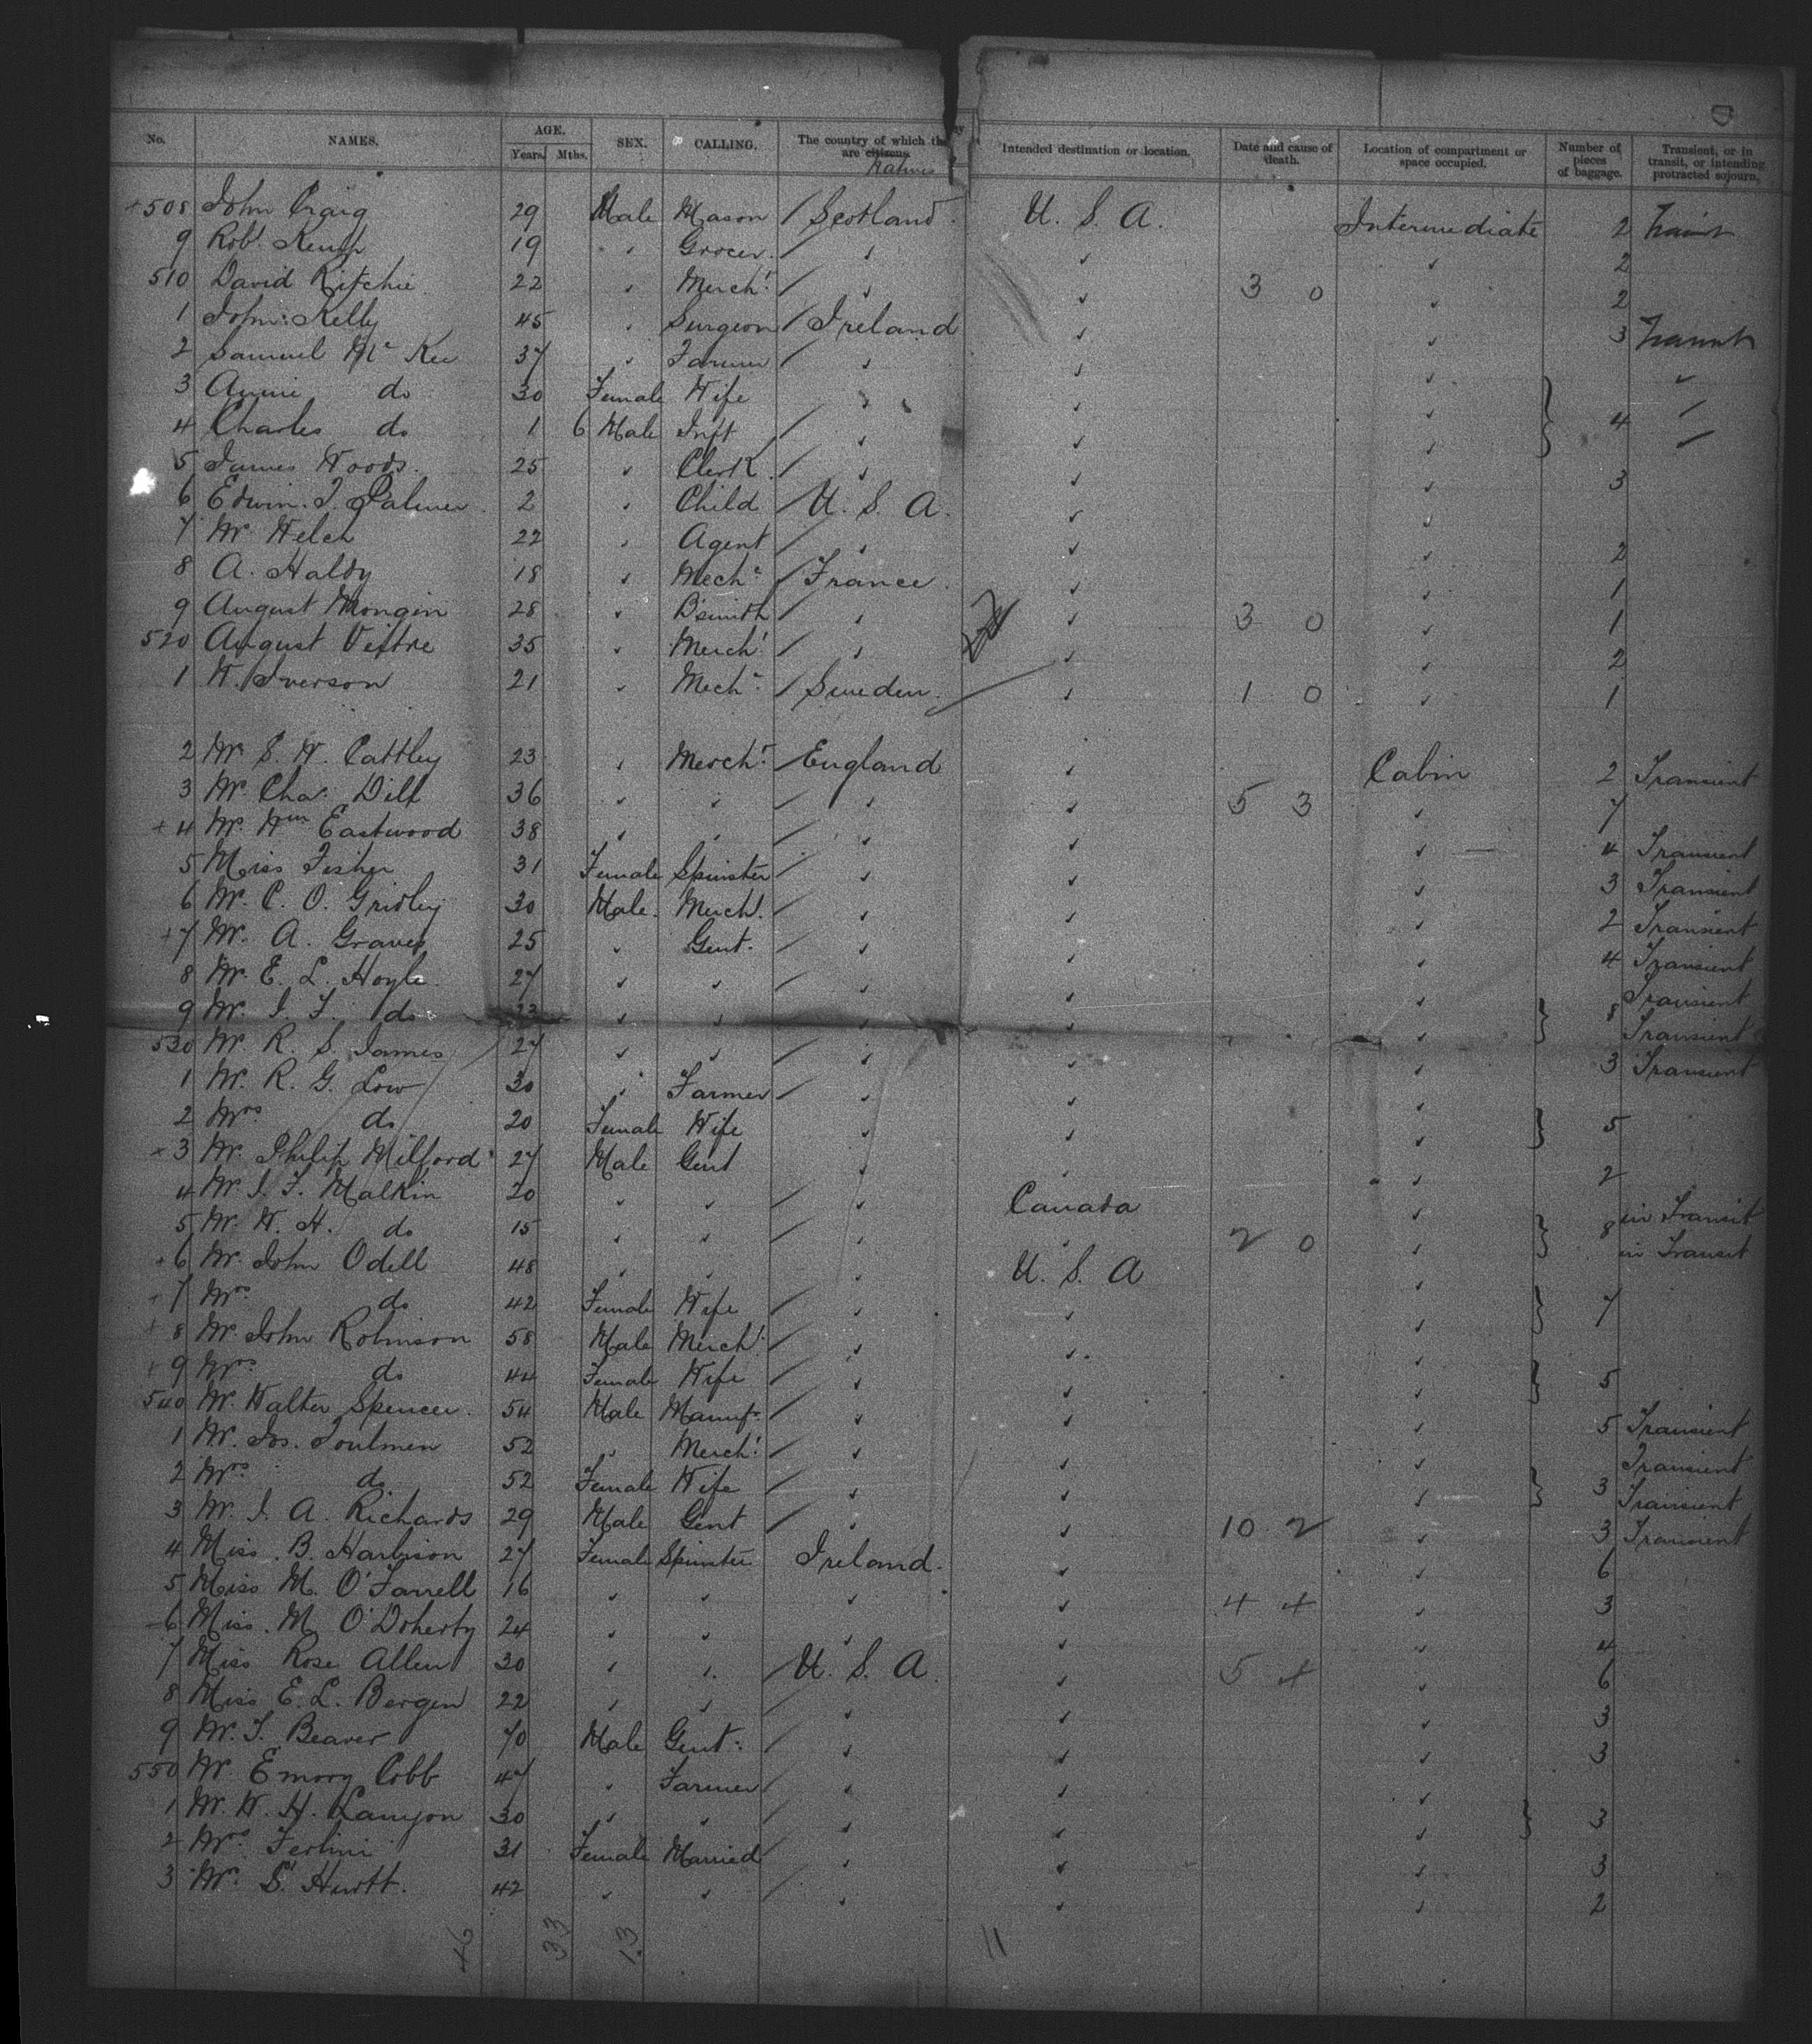 No. NAMES. AGE. Years. Mths. SEX. CALLING. The country of which they are citizens. Natives Intended destination or location. Date and cause of death. Location of compartment or space occupied. Number of pieces of baggage. Transient, or in transit, or intending protracted sojourn.
+508 John Craig 29 Male Mason / Scotland U. S. A. Intermediate 2 Transit
9 Robt. Kemp 19 " Grocer / " " " 2
510 David Ritchie 22 " Mercht / " " 3 0 " 2
1 John Kelly 45 " Surgeon / Ireland " " 3 Transit
2 Samuel Mc Kee 37 " Farmer / " " " "
3 Annie do 30 Female Wife " " " /
4 Charles do 1 6 Male Inft / " " " 4 /
5 James Woods 25 " Clerk / " " " 3
6 Edwin. T. Palmer 2 " Child / U. S. A. " "
7 Mr Welch 22 " Agent / " " " 2
8 A. Haldy 18 " Mechc / France " " 1
9 August Mongin 28 " B'smith / " " 3 0 " 1
520 August Veitre 35 " Mercht / " " " 2
1 W. Iverson 21 " Mechc / Sweden " 1 0 " 1
2 Mr. S. W. Cattley 23 " Mercht / England " Cabin 2 Transient
3 Mr. Chas. Dilt 36 " " / " " 5 3 " 7
+4 Mr. Wm Eastwood 38 " " / " " " 4 Transient
5 Miss Fisher 31 Female Spinster / " " " 3 Transient
6 Mr. C. O. Gridley 30 Male Mercht. / " " " 2 Transient
+7 Mr. A. Graves 25 " Gent. / " " " 4 Transient
8 Mr. E. L. Hoyle 27 " " / " " " Transient
9 Mr. I. F. do 23 " " " " " 8 Transient
530 Mr. R. S. James 27 " " / " " " 3 Transient
1 Mr. R. G. Low 30 " Farmer / " " "
2 Mrs do 20 Female Wife " " " 5
+3 Mr. Philip Milford 27 Male Gent " " " 2
4 Mr. J. F. Malkin 20 " " / " Canada " in Transit
5 Mr. W. H. do 15 " " / " " 2 0 " 8 in Transit
+6 Mr. John Odell 48 " " " U. S. A "
+7 Mrs do 42 Female Wife / " " " 7
+8 Mr. John Robinson 58 Male Mercht / " " "
+9 Mrs. do 44 Female Wife / " " " 5
540 Mr. Walter Spencer 54 Male Manufr / " " " 5 Transient
1 Mr. Jos. Toulmen 52 " Mercht / " " " Transient
2 Mrs do 52 Female Wife / " " " 3 Transient
3 Mr. J. A. Richards 29 Male Gent / " " 10 2 " 3 Transient
4 Miss. B. Harbison 27 Female Spinster Ireland. " " 6
5 Miss M. O'Farrell 16 " " " " 4 4 " 3
6 Miss. M. O'Doherty 24 " " " " " 4
7 Miss Rose Allen 30 " " / U. S. A " 5 4 " 6
8 Miss E. L. Bergen 22 " " / " " " 3
9 Mr. T. Beaver 70 Male Gent. / " " " 3
550 Mr. Emory Cobb 47 " Farmer / " " "
1 Mr. W. H. Lanyon 30 " " / " " " 3
2 Mrs. Ferlini 31 Female Married " " " 3
3 Mrs. S. Hurtt. 42 " " / " " " 2
46 33 13 11